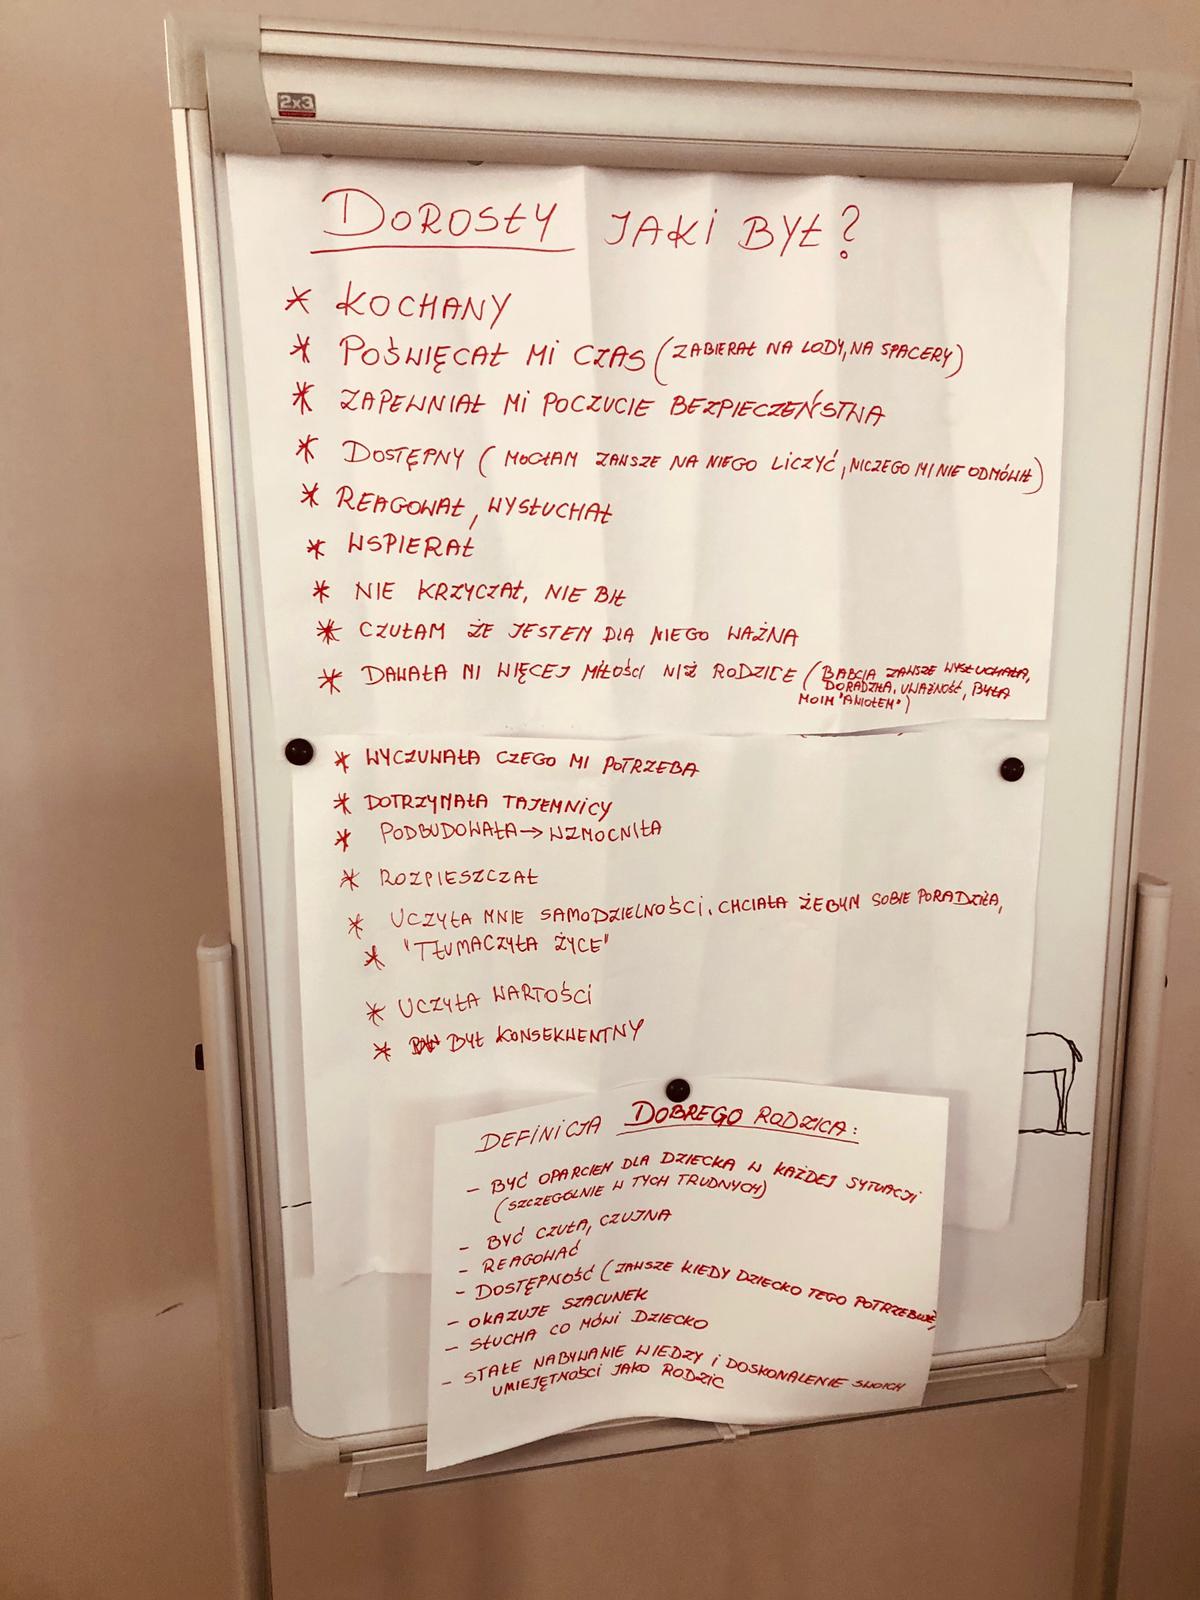 2x3
DOROSŁY JAKI BYŁ?
* KOCHANY
* POŚWIĘCAŁ MI CZAS (ZABIERAŁ NA LODY, NA SPACERY)
* ZAPEWNIAŁ MI POCZUCIE BEZPIECZEŃSTWA
* DOSTĘPNY (MOGŁAM ZAWSZE NA NIEGO LICZYĆ, NICZEGO MI NIE ODMÓWIŁ)
* REAGOWAŁ, WYSŁUCHAŁ
* WSPIERAŁ
* NIE KRZYCZAŁ, NIE BIŁ
* CZUŁAM ŻE JESTEM DLA NIEGO WAŻNA
* DAWAŁA MI WIĘCEJ MIŁOŚCI NIŻ RODZICE (BABCIA ZAWSZE WYSŁUCHAŁA,
DORADZIŁA, UWAŻNOŚĆ, BYŁA
MOIM "ANIOŁEM")
* WYCZUWAŁA CZEGO MI POTRZEBA
* DOTRZYMAŁA TAJEMNICY
* PODBUDOWAŁA → WZMOCNIŁA
* ROZPIESZCZAŁ
* UCZYŁA MNIE SAMODZIELNOŚCI, CHCIAŁA ŻEBYM SOBIE PORADZIŁA,
* "TŁUMACZYŁA ŻYCE"
* UCZYŁA WARTOŚCI
* BYŁ KONSEKWENTNY
DEFINICJA DOBREGO RODZICA:
- BYĆ OPARCIEM DLA DZIECKA W KAŻDEJ SYTUACJI
(SZCZEGÓLNIE W TYCH TRUDNYCH)
- BYĆ CZUŁA, CZUJNA
- REAGOWAĆ
- DOSTĘPNOŚĆ (ZAWSZE KIEDY DZIECKO TEGO POTRZEBUJE)
- OKAZUJE SZACUNEK
- SŁUCHA CO MÓWI DZIECKO
- STAŁE NABYWANIE WIEDZY I DOSKONALENIE SWOICH
UMIEJĘTNOŚCI JAKO RODZIC